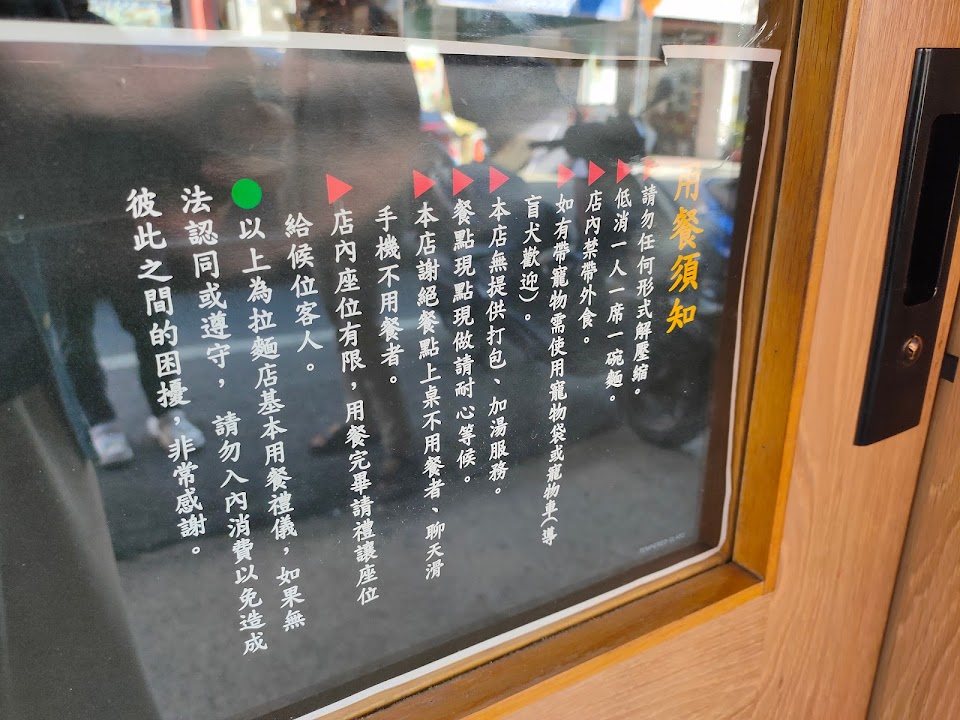 用餐須知
請勿任何形式解壓縮。
低消一人一席一碗麵。
店內禁帶外食。
如有帶寵物需使用寵物袋或寵物車(導
盲犬歡迎)。
本店無提供打包、加湯服務。
餐點現點現做請耐心等候。
本店謝絕餐點上桌不用餐者、聊天滑
手機不用餐者。
店內座位有限，用餐完畢請禮讓座位
給候位客人。
以上為拉麵店基本用餐禮儀，如果無
法認同或遵守，請勿入內消費以免造成
彼此之間的困擾，非常感謝。
TEMPERED GLASS